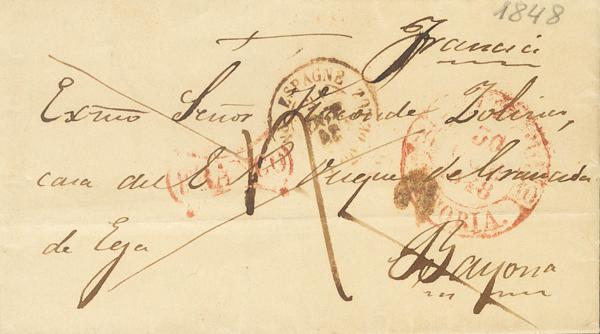 1848
Francia
Exmo Señor Vizconde Zolina,
casa del E. S. Duque de Granada
de Ega
Bayona
ESPAGNE
FRANCO
30
48
VITORIA.